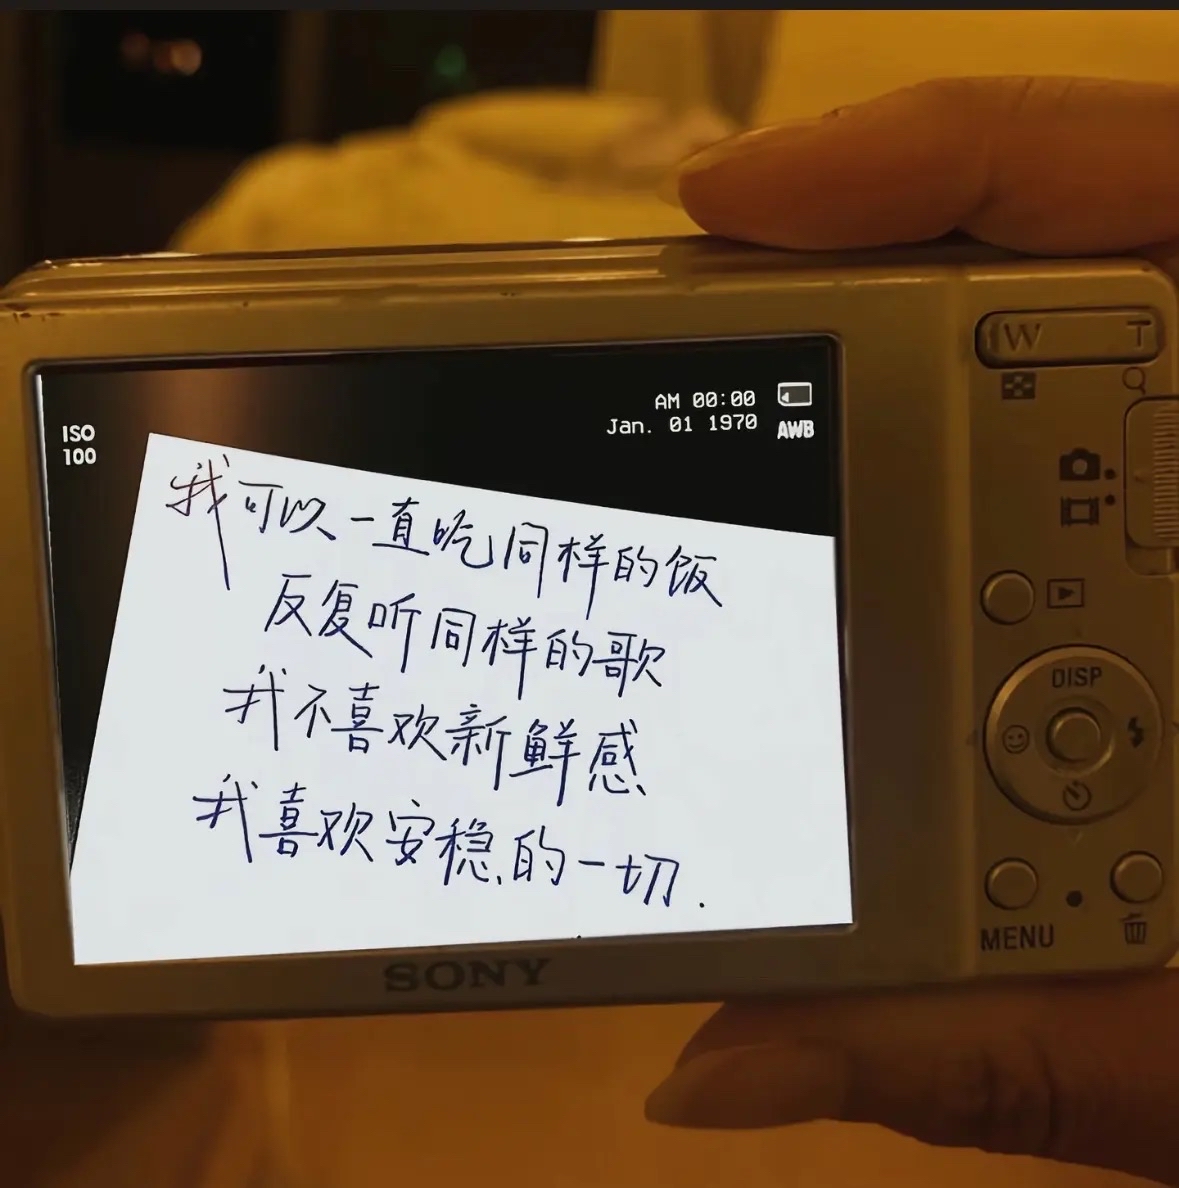 W T
AM 00:00
Jan. 01 1970
AWB
ISO
100
我可以一直吃同样的饭
反复听同样的歌
我不喜欢新鲜感
我喜欢安稳的一切.
DISP
MENU
SONY